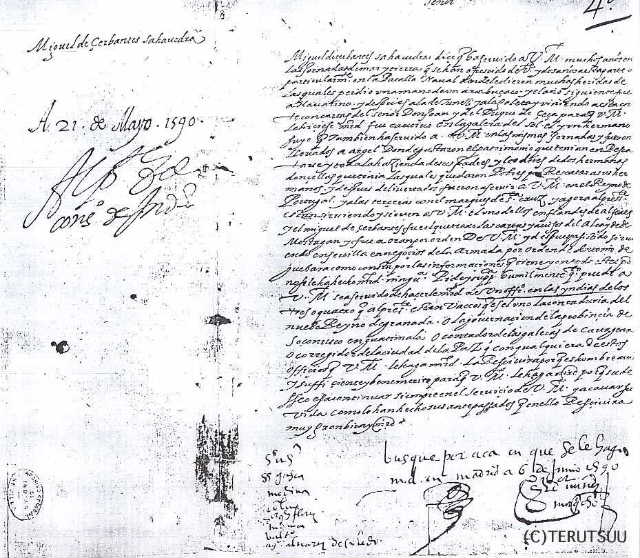 Señor
4
Miguel de Çerbantes Sahavedra
A. 21. de Mayo. 1590.
Miguel de Cerbantes sahavedra diçe que ha servido a V. M. muchos años en
las Jornadas de mar y tierra que se han ofrescido de
particularmente en la Batalla Naval donde le dieron muchas heridas de
las quales perdio una mano de un arcabuçaço y el año siguiente fue
a Navarino y despues a la de Tunez y a la goleta y viniendo a esta corte
con cartas del señor Don Joan y del Duque de Çeça para que V. M.
le hiciese md fue cautivo en la galera del sol el y un hermano
suyo que tambien ha servido a V. M. en las mismas Jornadas y fueron
llevados a argel donde gastaron el patrimonio que tenian en Resca
tarse y toda la hazienda de sus padres y los dotes de dos hermanas
donçellas que tenia las quales quedaron pobres por Rescatar a sus her
manos y despues de libertados fueron a servir a V. M. en el Reyno de
Portugal y a las terceras con el marques de
sirviendo y sirven a V. M. el uno dellos en flandes de alferez
y el miguel de Cerbantes fue el que traxo las cartas y avisos del Alcayde de
Mostagan y fue a oran por orden de V. M. y despues ha asistido sir
viendo en sevilla en negocios de la Armada por orden de Antonio de
guebara como consta por las informaciones que tiene y en todo este tpo
no se le ha hecho md ninguna Pide y supca humilmente quanto puede a
V. M. sea servido de hacerle md de un offiº en las yndias de los
tres o quatro que al presente estan vaccos que es el uno la contaduria del
nuebo Reyno de granada o la gobernacion de la probincia de
Soconusco en guatimala o contador de las galeras de Cartagena
o corregidor de la ciudad de la Paz que con qualquiera de estos
officios que V. M. le haga md la Resçivira porque es hombre avil
y suffiçiente y benemerito para que V. M. le haga md porque su de
seo es a continuar siempre en el servicio de V. M. y acavar su
vida como lo han hecho sus antepassados que en ello Resçivira
muy gran bien y md
busque por aca en que se le haga
md. en madrid a 6 de Junio 1590
medina
(C)TERUTSUU